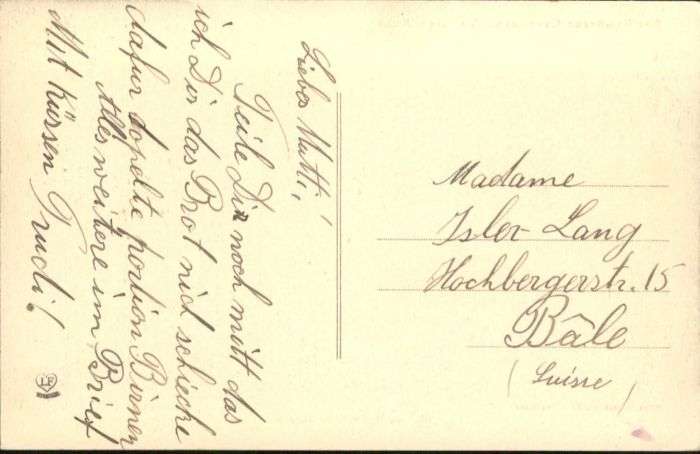 Liebes Mutti,
Teile Dir noch mitt das
ich Dir das Brot nid schicke
dafur dopelte portion Birnen
Alles weitere im Brief
Mit Küssen Trudi!
Madame
Isler-Lang
Hochbergerstr. 15
Bâle
(Suisse)